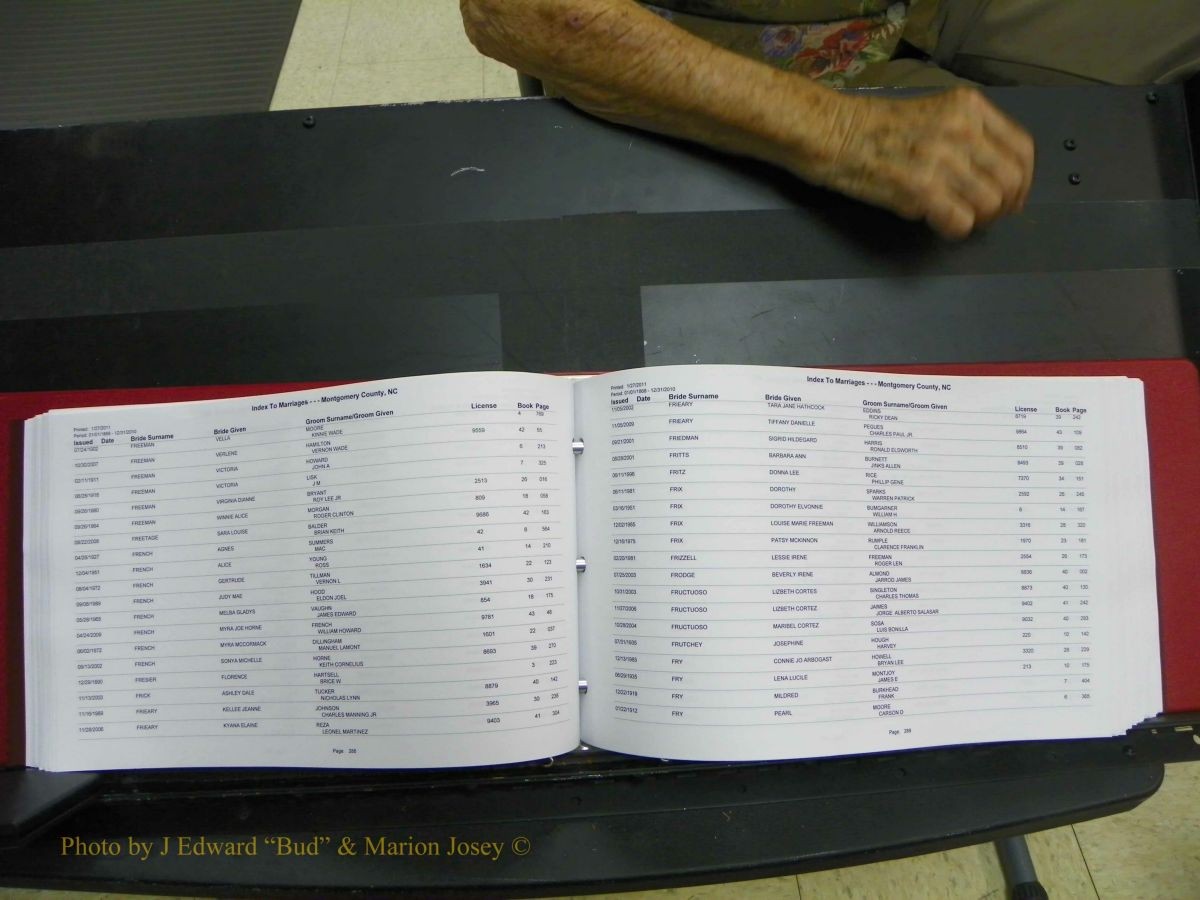 Index To Marriages - - - Montgomery County, NC
Printed: 1/27/2011
Period: 01/01/1868 - 12/31/2010
Issued Date Bride Surname Bride Given Groom Surname/Groom Given License Book Page
07/24/1902 FREEMAN VELLA MOORE 4 769
KINNIE WADE
10/30/2007 FREEMAN VERLENE HAMILTON 9559 42 55
VERNON WADE
02/11/1911 FREEMAN VICTORIA HOWARD 6 213
JOHN A
FREEMAN VICTORIA LISK 7 325
J M
09/26/1980 FREEMAN VIRGINIA DIANNE BRYANT 2513 26 016
ROY LEE JR
09/26/1964 FREEMAN WINNIE ALICE MORGAN 809 18 058
ROGER CLINTON
08/22/2008 FREETAGE SARA LOUISE BALDER 9686 42 163
BRIAN KEITH
04/29/1927 FRENCH AGNES SUMMERS 42 8 564
MAC
12/04/1951 FRENCH ALICE YOUNG 41 14 210
ROSS
08/04/1972 FRENCH GERTRUDE TILLMAN 1634 22 123
VERNON L
09/08/1989 FRENCH JUDY MAE HOOD 3941 30 231
ELDON JOEL
05/28/1965 FRENCH MELBA GLADYS VAUGHN 854 18 175
JAMES EDWARD
04/24/2009 FRENCH MYRA JOE HORNE FRENCH 9781 43 48
WILLIAM HOWARD
06/02/1972 FRENCH MYRA MCCORMACK DILLINGHAM 1601 22 037
MANUEL LAMONT
09/13/2002 FRENCH SONYA MICHELLE HORNE 8693 39 270
KEITH CORNELIUS
12/29/1890 FRESIER FLORENCE HARTSELL 3 223
BRICE W
11/13/2003 FRICK ASHLEY DALE TUCKER 8879 40 142
NICHOLAS LYNN
11/16/1989 FRIEARY KELLEE JEANNE JOHNSON 3965 30 238
CHARLES MANNING JR
11/28/2006 FRIEARY KYANA ELAINE REZA 9403 41 304
LEONEL MARTINEZ
Page: 288
Index To Marriages - - - Montgomery County, NC
Printed: 1/27/2011
Period: 01/01/1868 - 12/31/2010
Issued Date Bride Surname Bride Given Groom Surname/Groom Given License Book Page
11/05/2002 FRIEARY TARA JANE HATHCOCK EDDINS 8719 39 242
RICKY DEAN
11/05/2009 FRIEARY TIFFANY DANIELLE PEGUES 9864 43 109
CHARLES PAUL JR.
09/21/2001 FRIEDMAN SIGRID HILDEGARD HARRIS 8510 39 082
RONALD ELDSWORTH
FRITTS BARBARA ANN BURNETT 8493 39 028
JINKS ALLEN
FRITZ DONNA LEE RICE 7270 34 151
PHILLIP GENE
06/11/1981 FRIX DOROTHY SPARKS 2592 26 245
WARREN PATRICK
03/16/1951 FRIX DOROTHY ELVONNIE BUMGARNER 6 14 167
WILLIAM H
12/02/1985 FRIX LOUISE MARIE FREEMAN WILLIAMSON 3316 28 320
ARNOLD REECE
12/16/1975 FRIX PATSY MCKINNON RUMPLE 1970 23 181
CLARENCE FRANKLIN
02/20/1981 FRIZZELL LESSIE IRENE FREEMAN 2554 26 173
ROGER LEN
07/25/2003 FRODGE BEVERLY IRENE ALMOND 8836 40 002
JARROD JAMES
10/31/2003 FRUCTUOSO LIZBETH CORTES SINGLETON 8873 40 130
CHARLES THOMAS
11/07/2006 FRUCTUOSO LIZBETH CORTEZ JAIMES 9402 41 242
JORGE ALBERTO SALASAR
10/28/2004 FRUCTUOSO MARIBEL CORTEZ SOSA 9032 40 293
LUIS BONILLA
07/31/1935 FRUTCHEY JOSEPHINE HOUGH 220 10 142
HARVEY
12/13/1985 FRY CONNIE JO ARBOGAST HOWELL 3320 28 229
BRYAN LEE
06/29/1935 FRY LENA LUCILE MONTJOY 213 10 175
JAMES E
12/02/1918 FRY MILDRED BURKHEAD 7 404
FRANK
01/22/1912 FRY PEARL MOORE 6 365
CARSON D
Page: 289
Photo by J Edward “Bud” & Marion Josey ©